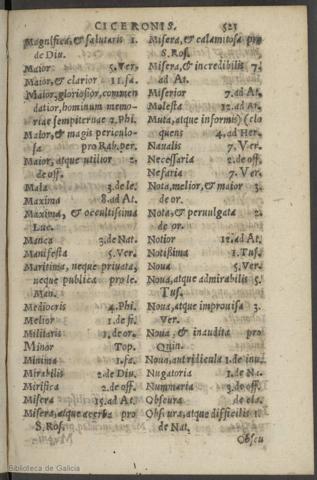 CICERONIS. 521
Magnifica, & salutaris 1.
de Diu.
Maior 5. Ver.
Maior, & clarior 11. fa.
Maior, gloriosior, commen
datior, hominum memo-
riæ sempiternæ 2. Phi.
Maior, & magis periculo-
sa pro Rab. per.
Maior, atque utilior 2.
de off.
Mala 3. de le.
Maxima 8. ad At.
Maxima, & occultissima
Luc.
Manca 3. de Nat.
Manifesta 5. Ver.
Maritima, neque priuata,
neque publica pro le.
Man.
Mediocris 4. Phi.
Melior 1. de fi.
Militaris 1. de or.
Minor Top.
Minima 1. fa.
Mirabilis 2. de Diu.
Mirifica 2. de off.
Misera 15. ad At.
Misera, atque acerba pro
S. Ros.
Misera, & calamitosa pro
S. Ros.
Misera, & incredibilis 7.
ad At.
Miserior 7. ad At.
Molesta 12. ad At.
Muta, atque informis) (elo
quens 4. ad Her.
Naualis 7. Ver.
Necessaria 2. de off.
Nefaria 7. Ver.
Nota, melior, & maior 3.
de or.
Nota, & peruulgata 2.
de or.
Notior 12. ad At.
Notissima 1. Tus.
Noua 5. Ver.
Noua, atque admirabilis 5.
Tus.
Noua, atque improuisa 3.
Ver.
Noua, & inaudita pro
Quin.
Noua, aut ridicula 1. de inu.
Nugatoria 1. de Na.
Nummaria 3. de off.
Obscura de cla.
Obscura, atque difficilis 1.
de Nat.
Obscu
Biblioteca de Galicia